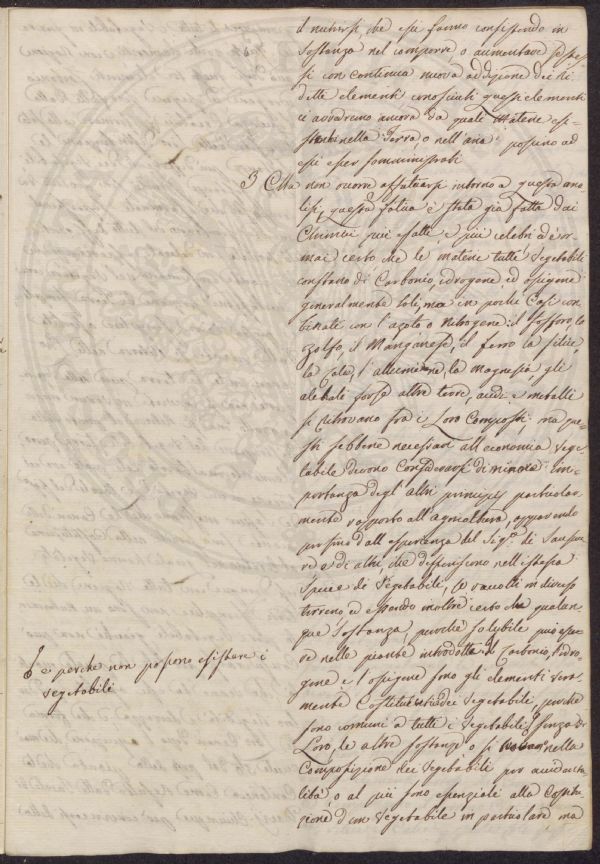 il nutrirsi che essi fanno consistendo in
sostanza nel comporre o aumentare se stes-
si con continua nuova addizione dei su
detti elementi conosciuti questi elementi
ci avvedremo ancora da quali materie esi-
stenti nella Terra, o nell'aria possino ad
essi esser somministrati
3 Ma non occorre affannarsi intorno a questa ana
lisi, questa fatica è stata già fatta dai
Chimici più esatti, e più celebri ed è or
mai certo che le materie tutte vegetabili
constano di Carbonio, idrogene, ed ossigene
generalmente soli, ma in poche Casi com
binati con l'azoto o Nitrogene il fosforo, lo
zolfo, il Manganese, il ferro la silice,
la Calce, l'allumine, la magnesia, gli
alcali forse altre terre, acidi e metalli
si ritrovano fra i Loro Composti, ma que-
sti sebbene necessari all'economia vege-
tabile devono Considerarsi di minore im-
portanza degl'altri principj particolar-
mente rapporto all'agricoltura, apparendo
persino dall'esperienza del Sigr. di Saussu
re e di altri, che differiscono nell'istessa
specie di Vegetabili, se raccolti in diverso
terreno ed essendo inoltre certo che qualun
que Sostanza, purché solubile può esse
re nelle piante introdotta il Carbonio, Idro-
gene e l'ossigene sono gli elementi vera-
mente Costitutivi dei Vegetabili, perche
sono comuni a tutti i Vegetabili senza di
Loro, le altre sostanze o si trovan nella
Composizione dei Vegetabili per accidenta
lità, o al più sono essenziali alla Costitu
zione d'un Vegetabile in particolare ma
e perche non possono esistere i
vegetabili